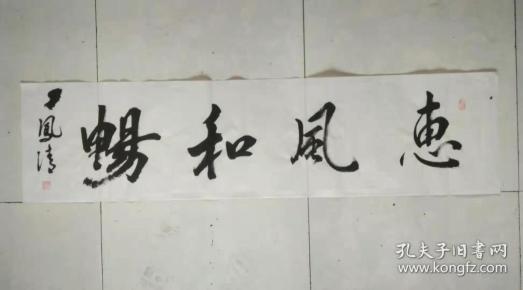 惠風和暢
鳳清
孔夫子旧书网
www.kongfz.com